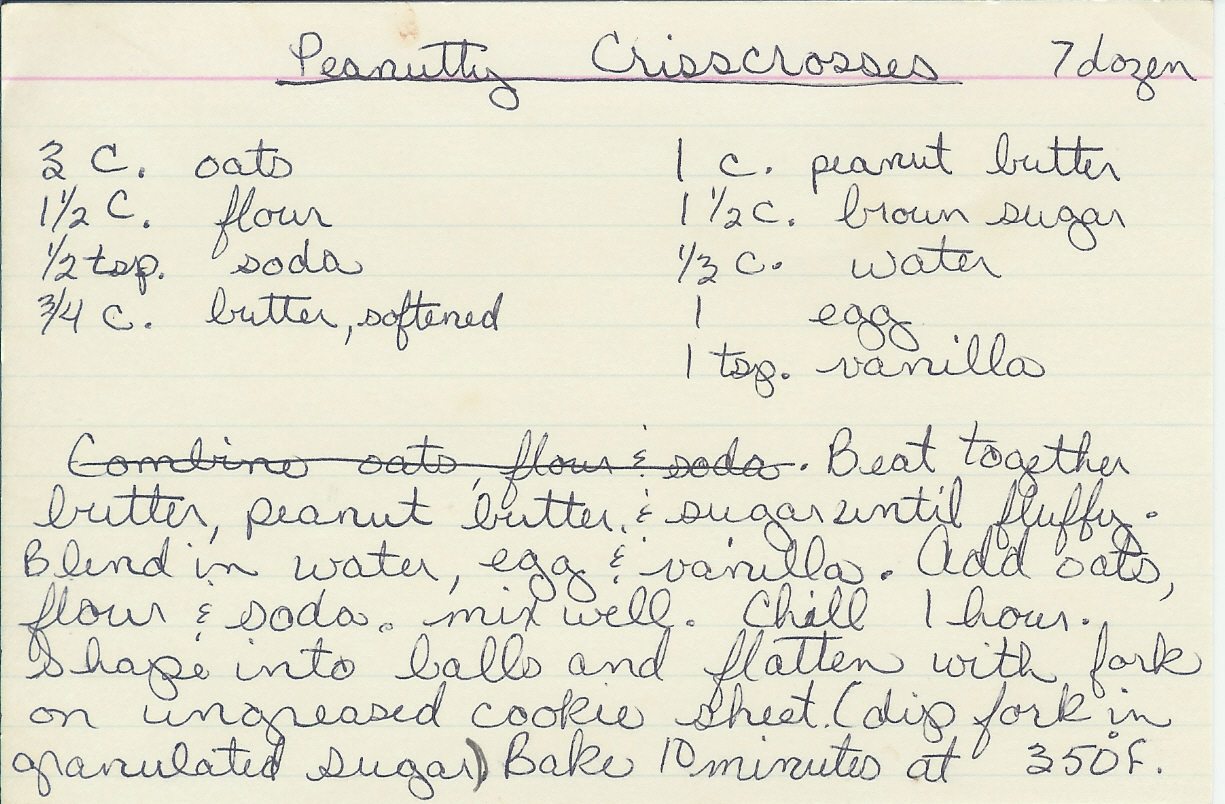 Peanutty Crisscrosses 7 dozen
3 C. oats
1 1/2 C. flour
1/2 tsp. soda
3/4 c. butter, softened
1 c. peanut butter
1 1/2 c. brown sugar
1/3 c. water
1 egg
1 tsp. vanilla
Combine oats, flour & soda. Beat together
butter, peanut butter, & sugar until fluffy.
Blend in water, egg & vanilla. Add oats,
flour & soda. mix well. Chill 1 hour.
Shape into balls and flatten with fork
on ungreased cookie sheet. (dip fork in
granulated sugar) Bake 10 minutes at 350F.